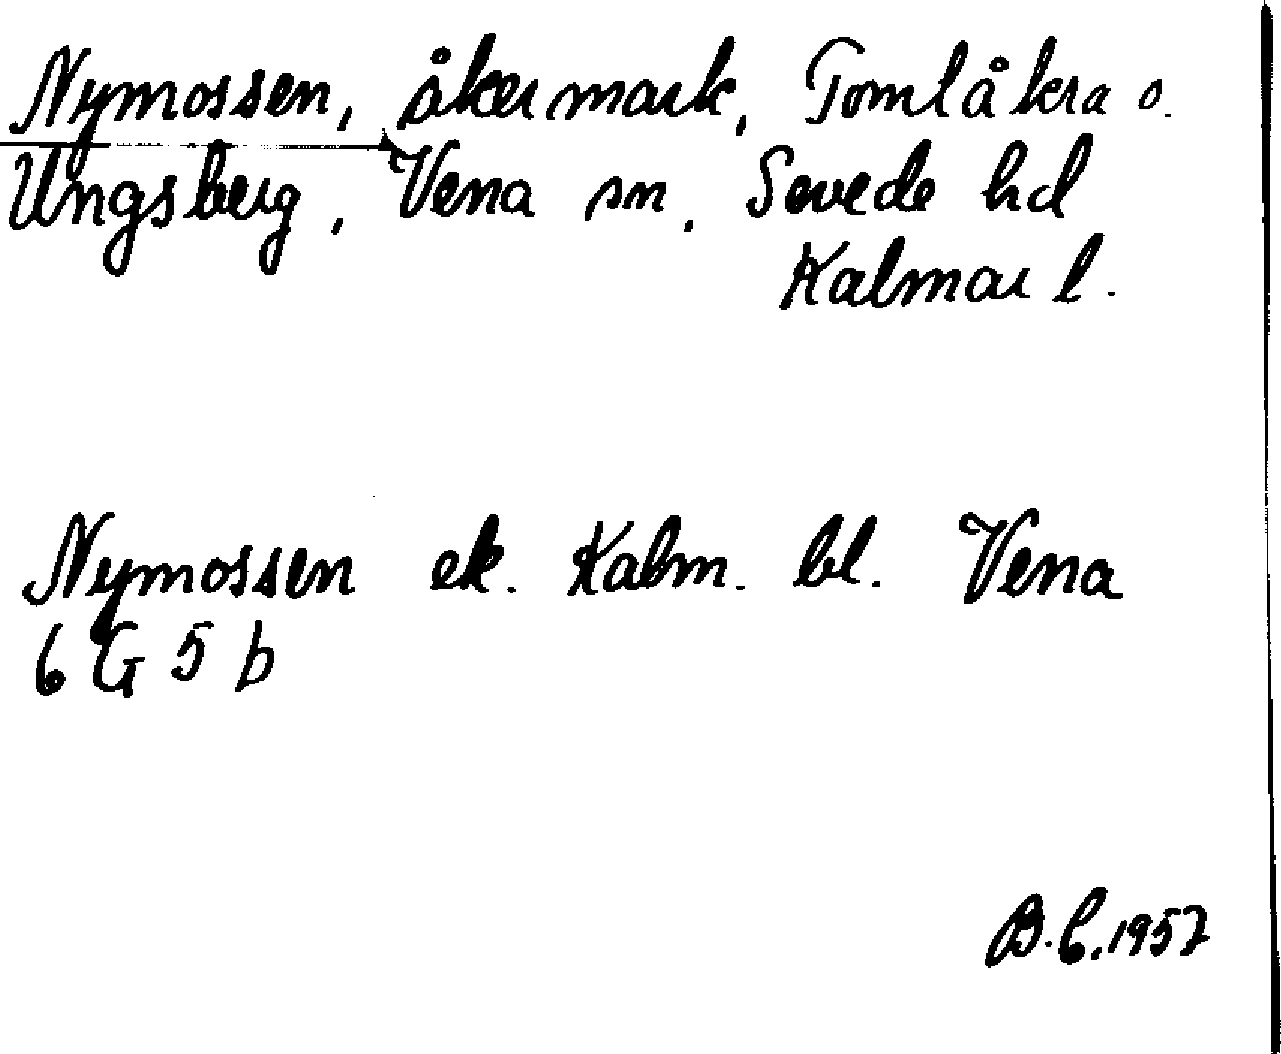 Nymossen, åkermark, Tomlåkra o.
Ungsberg, Vena sn. Sevede hd
Kalmar l.
Nymossen ek. Kalm. bl. Vena
6 G 5 b
B.C. 1957